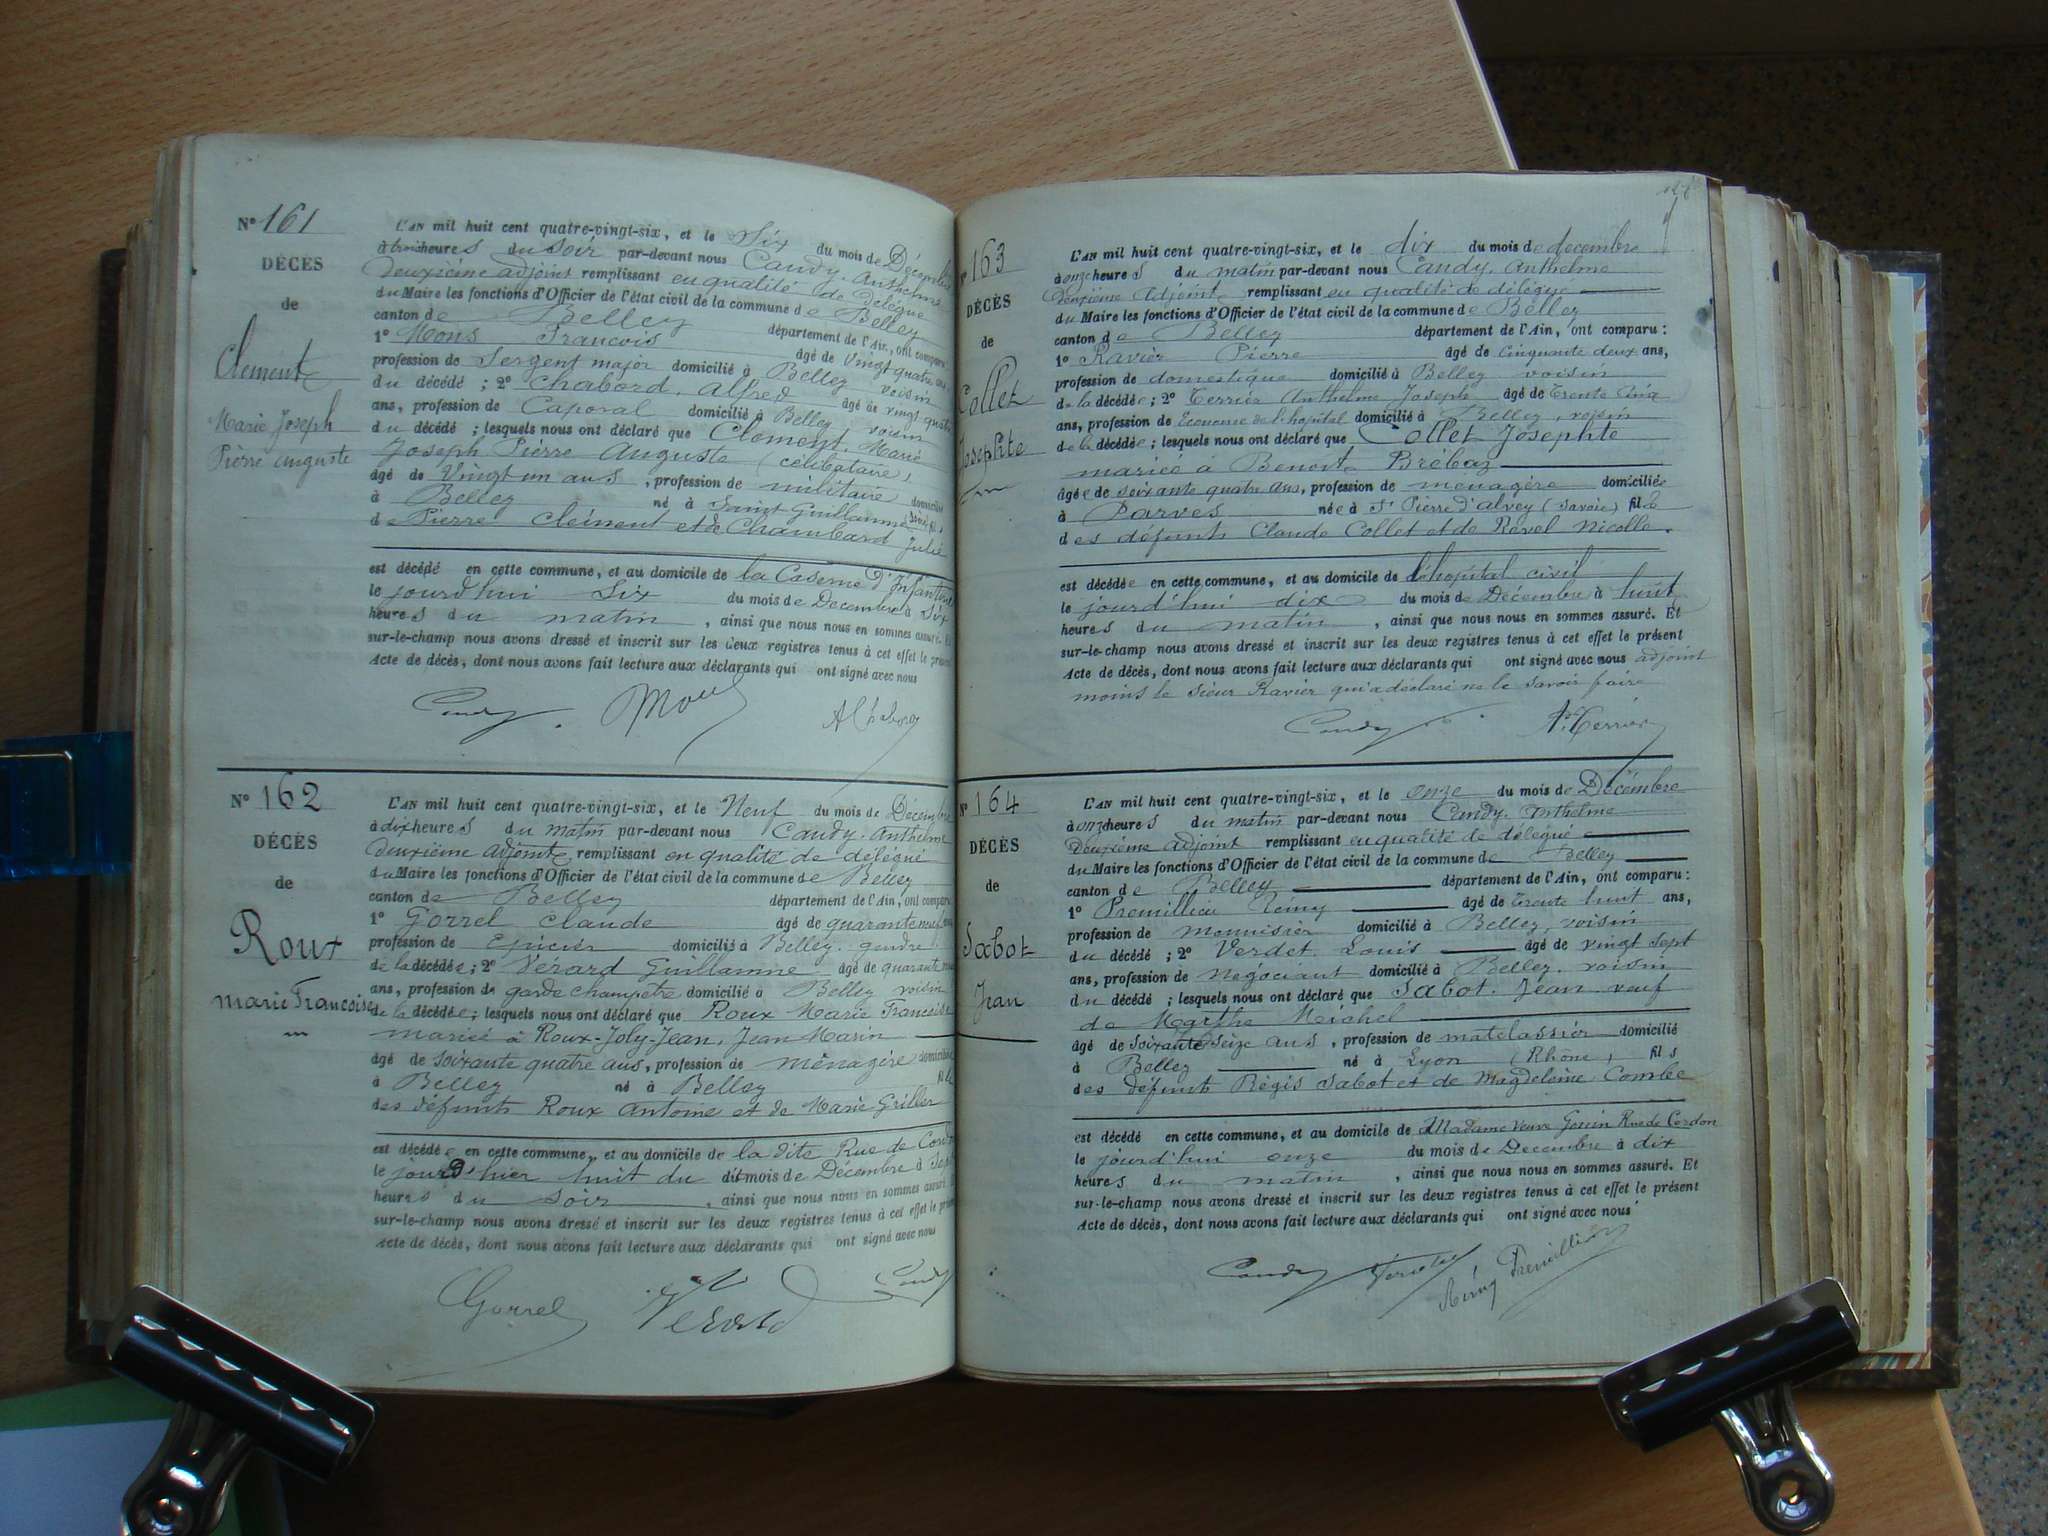 N° 161
DÉCÈS
de
Clement
Marie Joseph
Pierre auguste
L'AN mil huit cent quatre-vingt-six, et le Six du mois de Décembre
à trois heures du soir par-devant nous Candy. Anthelme
deuxième adjoint remplissant en qualité de délégué
du Maire les fonctions d'Officier de l'état civil de la commune de Belley
canton de Belley département de l'Ain, ont comparu
1° Mous Francois âgé de vingt quatre ans
profession de Sergent major domicilié à Belley voisin
du décédé ; 2° Chabord, Alfred âgé de vingt quatre
ans, profession de Caporal domicilié à Belley voisin
du décédé ; lesquels nous ont déclaré que Clement, Marie
Joseph Pierre Auguste (célibataire)
âgé de Vingt un ans , profession de militaire domicilié
à Belley né à Saint Guillaume fils
de Pierre Clément et de Chambard Julie
est décédé en cette commune, et au domicile de la Caserne d'Infanterie
le jourd'hui Six du mois de Decembre à Six
heures du matin , ainsi que nous nous en sommes assuré. Et
sur-le-champ nous avons dressé et inscrit sur les deux registres tenus à cet effet le présent
Acte de décès, dont nous avons fait lecture aux déclarants qui ont signé avec nous
Candy Mous A Chabord
N° 162
DÉCÈS
de
Roux
marie Francoise
L'AN mil huit cent quatre-vingt-six, et le Neuf du mois de Décembre
à dix heures du matin par-devant nous Candy. Anthelme
deuxième adjoint remplissant en qualité de délégué
du Maire les fonctions d'Officier de l'état civil de la commune de Belley
canton de Belley département de l'Ain, ont comparu
1° Gorrel Claude âgé de quarante neuf ans
profession de Epicier domicilié à Belley. gendre
de la décédée ; 2° Vérard Guillaume âgé de quarante
ans, profession de garde champetre domicilié à Belley voisin
de la décédée ; lesquels nous ont déclaré que Roux Marie Francoise
mariée à Roux-Joly-Jean, Jean Marin
âgé de soixante quatre ans, profession de ménagère domicilié
à Belley né à Belley fille
des défunts Roux Antoine et de Marie Grillet
est décédée en cette commune, et au domicile de la dite Rue de Cordon
le jour d'hier huit du dit mois de Décembre à Sept
heures du soir , ainsi que nous nous en sommes assuré. Et
sur-le-champ nous avons dressé et inscrit sur les deux registres tenus à cet effet le présent
Acte de décès, dont nous avons fait lecture aux déclarants qui ont signé avec nous
Gorrel Verard Candy
N° 163
DÉCÈS
de
Collet
Josephte
L'AN mil huit cent quatre-vingt-six, et le dix du mois de decembre
à onze heures du matin par-devant nous Candy. Anthelme
deuxième Adjoint remplissant en qualité de délégué
du Maire les fonctions d'Officier de l'état civil de la commune de Belley
canton de Belley département de l'Ain, ont comparu :
1° Ravier Pierre âgé de cinquante deux ans,
profession de domestique domicilié à Belley voisin
de la décédée ; 2° Terrier Anthelme Joseph âgé de Trente Cinq
ans, profession de Econome de l'hopital domicilié à Belley, voisin
de la décédée ; lesquels nous ont déclaré que Collet Josephte
mariée à Benoit Brébaz
âgée de soixante quatre ans, profession de ménagère domiciliée
à Parves née à St Pierre d'alvey (Savoie) fille
des défunts Claude Collet et de Revel Nicolle.
est décédée en cette commune, et au domicile de l'hopital civil
le jourd'hui dix du mois de Décembre à huit
heures du matin , ainsi que nous nous en sommes assuré. Et
sur-le-champ nous avons dressé et inscrit sur les deux registres tenus à cet effet le présent
Acte de décès, dont nous avons fait lecture aux déclarants qui ont signé avec nous adjoint
moins le sieur Ravier qui a déclaré ne le savoir faire
Candy A. Terrier
N° 164
DÉCÈS
de
Sabot
Jean
L'AN mil huit cent quatre-vingt-six, et le onze du mois de Décembre
à onze heures du matin par-devant nous Candy. Anthelme
deuxième adjoint remplissant en qualité de délégué
du Maire les fonctions d'Officier de l'état civil de la commune de Belley
canton de Belley département de l'Ain, ont comparu :
1° Premillieu Rémy âgé de Trente huit ans,
profession de menuisier domicilié à Belley, voisin
du décédé ; 2° Verdet Louis âgé de vingt sept
ans, profession de négociant domicilié à Belley. voisin
du décédé ; lesquels nous ont déclaré que Sabot. Jean veuf
de Marthe Michel
âgé de soixante seize ans , profession de matelassier domicilié
à Belley né à Lyon (Rhône) fils
des défunts Régis Sabot et de Magdeleine Combe
est décédé en cette commune, et au domicile de Madame Veuve Gonin Rue de Cordon
le jourd'hui onze du mois de Decembre à dix
heures du matin , ainsi que nous nous en sommes assuré. Et
sur-le-champ nous avons dressé et inscrit sur les deux registres tenus à cet effet le présent
Acte de décès, dont nous avons fait lecture aux déclarants qui ont signé avec nous
Candy Verdet Rémy Premillieu